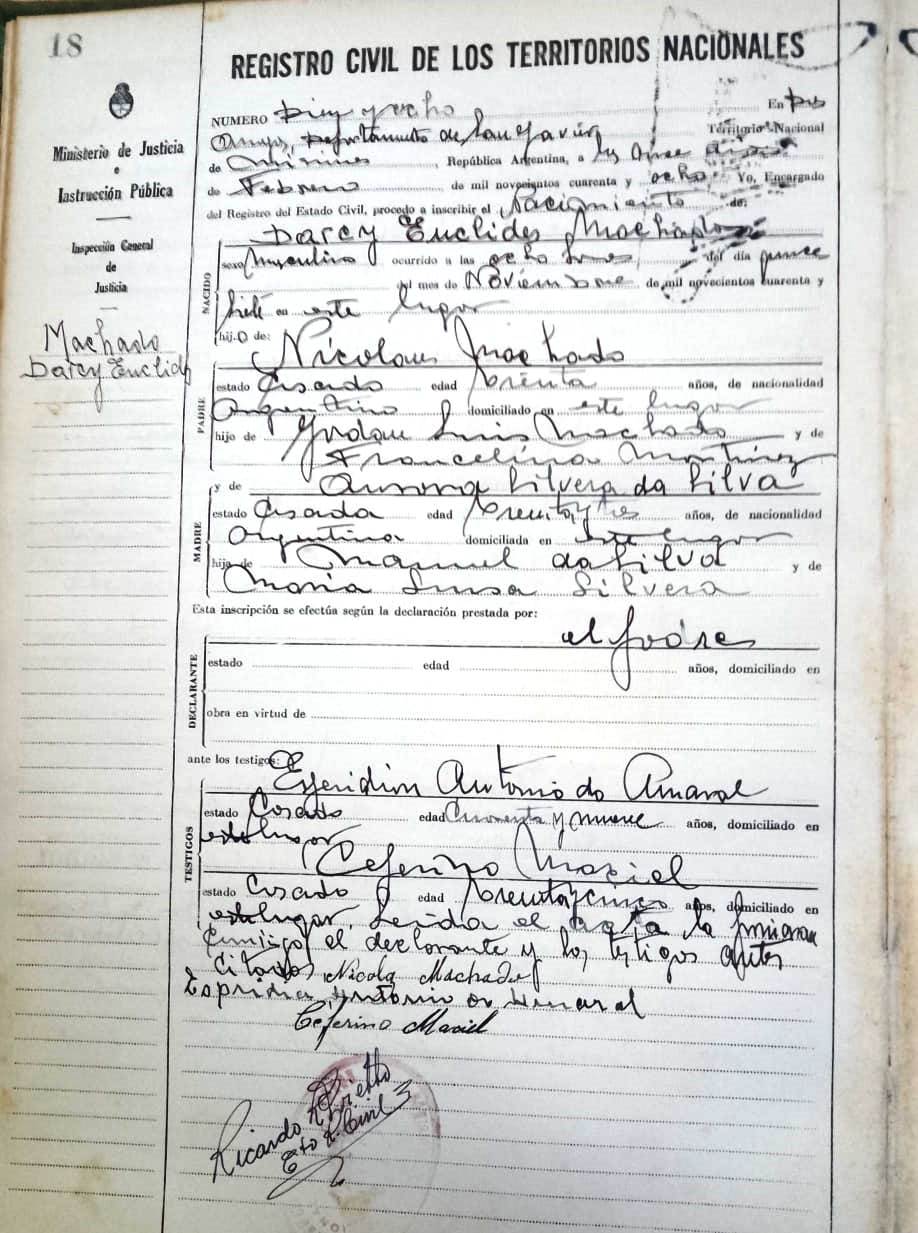 18
REGISTRO CIVIL DE LOS TERRITORIOS NACIONALES
Ministerio de Justicia
e
Instrucción Pública
Inspección General
de
Justicia
Machado
Darcy Euclides
NUMERO Diez y ocho En Dos
Departamento de San Javier Territorio Nacional
de Misiones, República Argentina, a los doce
de Febrero de mil novecientos cuarenta y ocho Yo, Encargado
del Registro del Estado Civil, procedo a inscribir el Nacimiento de:
NACIDO
Darcy Euclides Machado
sexo Masculino ocurrido a las ocho horas del día quince
del mes de Noviembre de mil novecientos cuarenta y
siete en este lugar
hijo de: Nicolau Machado
PADRE
estado Casado edad treinta años, de nacionalidad
Argentino domiciliado en este lugar
hijo de Luis Machado y de
Francelina Martinez
MADRE
y de Aurora Silvera da Silva
estado Casada edad treinta y tres años, de nacionalidad
Argentina domiciliada en este lugar
hija de Manuel da Silva y de
Maria Luisa Silvera
Esta inscripción se efectúa según la declaración prestada por:
el padre
DECLARANTE
estado edad años, domiciliado en
obra en virtud de
ante los testigos:
TESTIGOS
Esperidion Antonio do Amaral
estado Casado edad Cuarenta y nueve años, domiciliado en
este lugar
Ceferino Maciel
estado Casado edad treinta y cinco años, domiciliado en
este lugar. Leida el acta la firman
conmigo el declarante y los testigos antes
citados Nicola Machado
Antonio do Amaral
Ceferino Maciel
Ricardo R. Prietto
Edo R. Civil